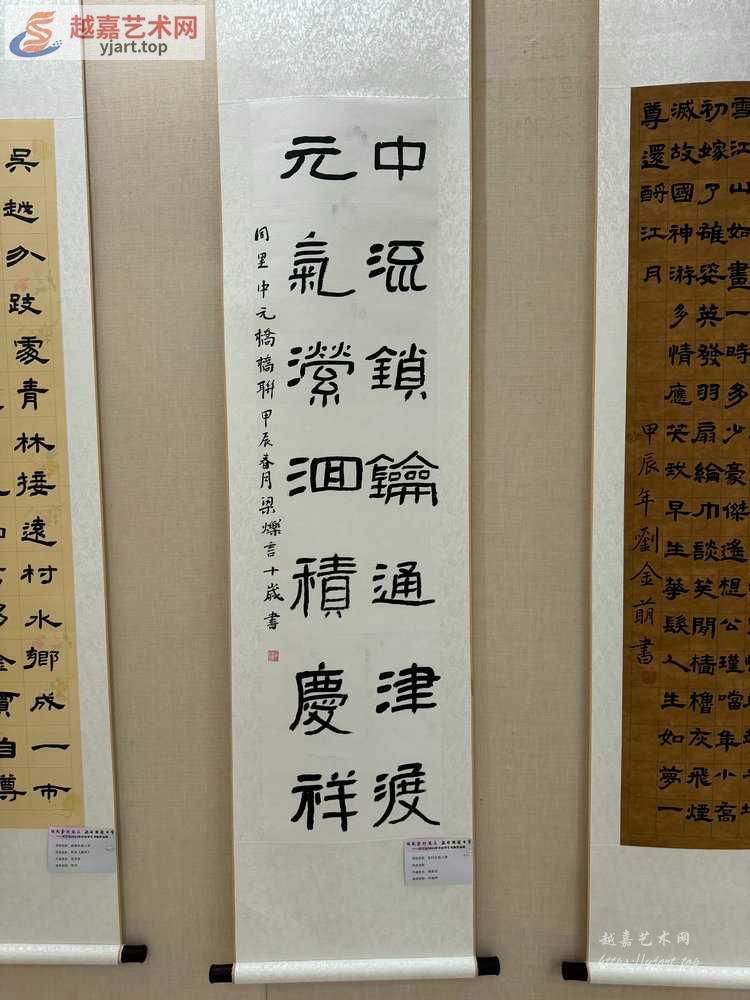 越嘉艺术网
yjart.top
吳越分歧處青林接遠村水鄉成一市
金賈自尊
中流鎖鑰通津渡
元氣瀠洄積慶祥
同里中元橋橋聯甲辰春月梁爍言十歲書
雪江山如畫一時多少豪傑遙想公瑾噹年小喬
初嫁了雄姿英發羽扇綸巾談笑間檣櫓灰飛煙
滅故國神游多情應笑我早生華髮人生如夢一
尊還酹江月
甲辰年劉金萌書
越嘉艺术网
http://yjart.top